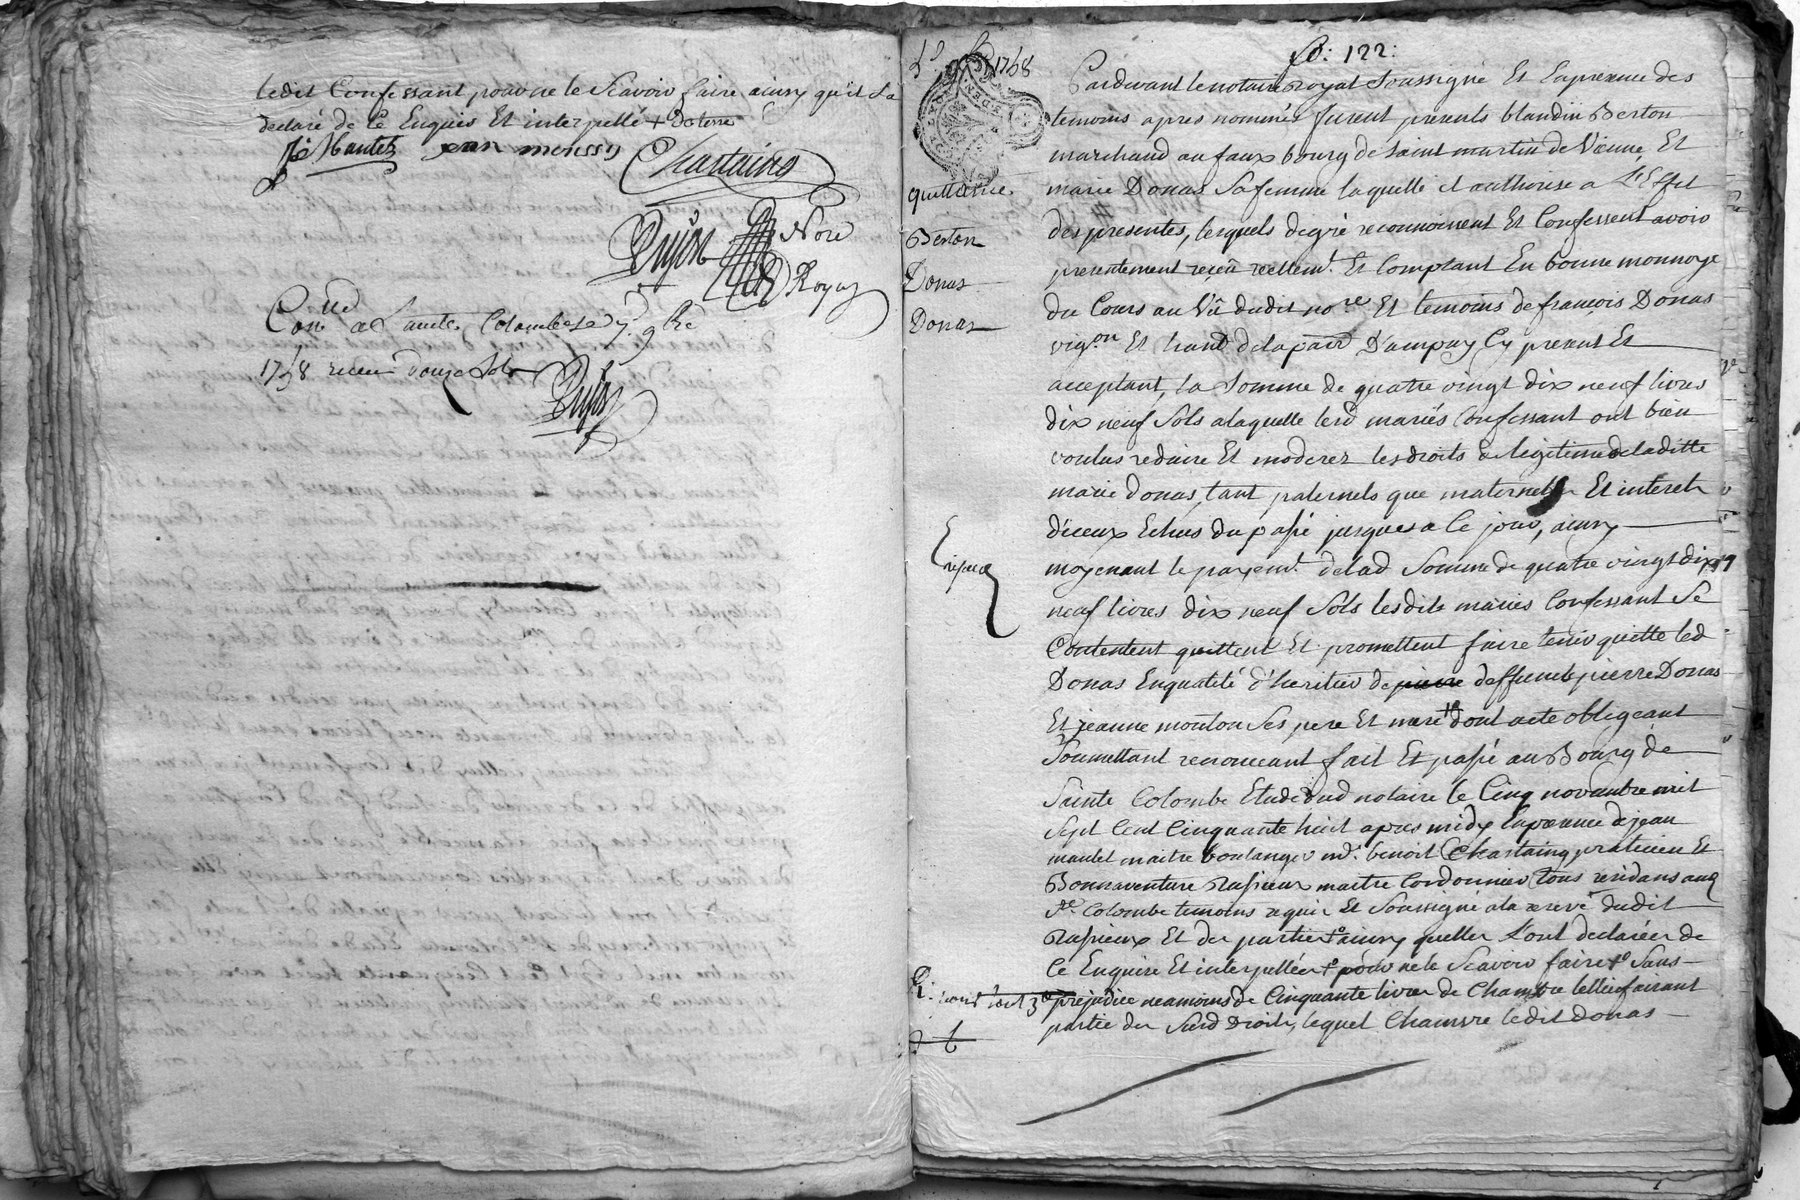 ledit Confessant pour ne le Scavoir faire ainsy qu'il l'a
declaré de ce Enquis Et interpellé + doterre
Jè Mantel jean moussy Chastaing
Dujon Nore
Royal
Con.ue a Sainte Colombe le 9.bre
1758 receu douze sols
Dujon
1758
fo: 122:
quittance
Berton
Donas
Donas
Pardevant le notaire Royal Soussigné Et En presence des
temoins apres nommés furent presents blandin Berton
marchand au faux bourg de Saint martin de Vienne, Et
marie Donas Sa femme laquelle il authorise a L'Effet
des presentes, lesquels de gré reconnoissent Et Confessent avoir
presentement reçeû reellem.t Et Comptant En bonne monnoye
du Cours au Vû dudit no.re Et temoins de françois Donas
vig.on Et hant de la parr D'ampuy Cy present Et
acceptant, la Somme de quatre vingt dix neuf livres
dix neuf Sols a laquelle lesd mariés Confessant ont bien
voulus reduire Et moderer les droits de legitime de laditte
marie Donas, tant paternels que maternels Et interets
d'iceux Echus du passé jusques a Ce jour, ainsy
moyenant le payem.t de lad Somme de quatre vingt dix
neuf livres dix neuf Sols lesdits mariés Confessant Se
Contentent quittent Et promettent faire tenir quitte led
Donas En qualité d'heritier de pierre deffunts pierre Donas
Et jeanne mouton Ses pere Et mere dont acte obligeant
Soumettant renonceant fait Et passé au Bourg de
Sainte Colombe Etude dud notaire le Cinq novembre mil
Sept Cent Cinquante huit apres midy En presence de jean
mantel maitre boulanger m.e benoit Chastaing praticien Et
Bonnaventure Rusieux maitre Cordonnier tous residans aud
S.te Colombe temoins requis Et Soussigné a la reserve dudit
Rusieux Et des parties ainsy quelles L'ont declarées de
Ce Enquise Et interpellées pour ne le Scavoir faire Sans
prejudice neamoins de Cinquante livres de Chanvre telle faisant
partie des Susd Droits, lequel Chanvre ledit Donas